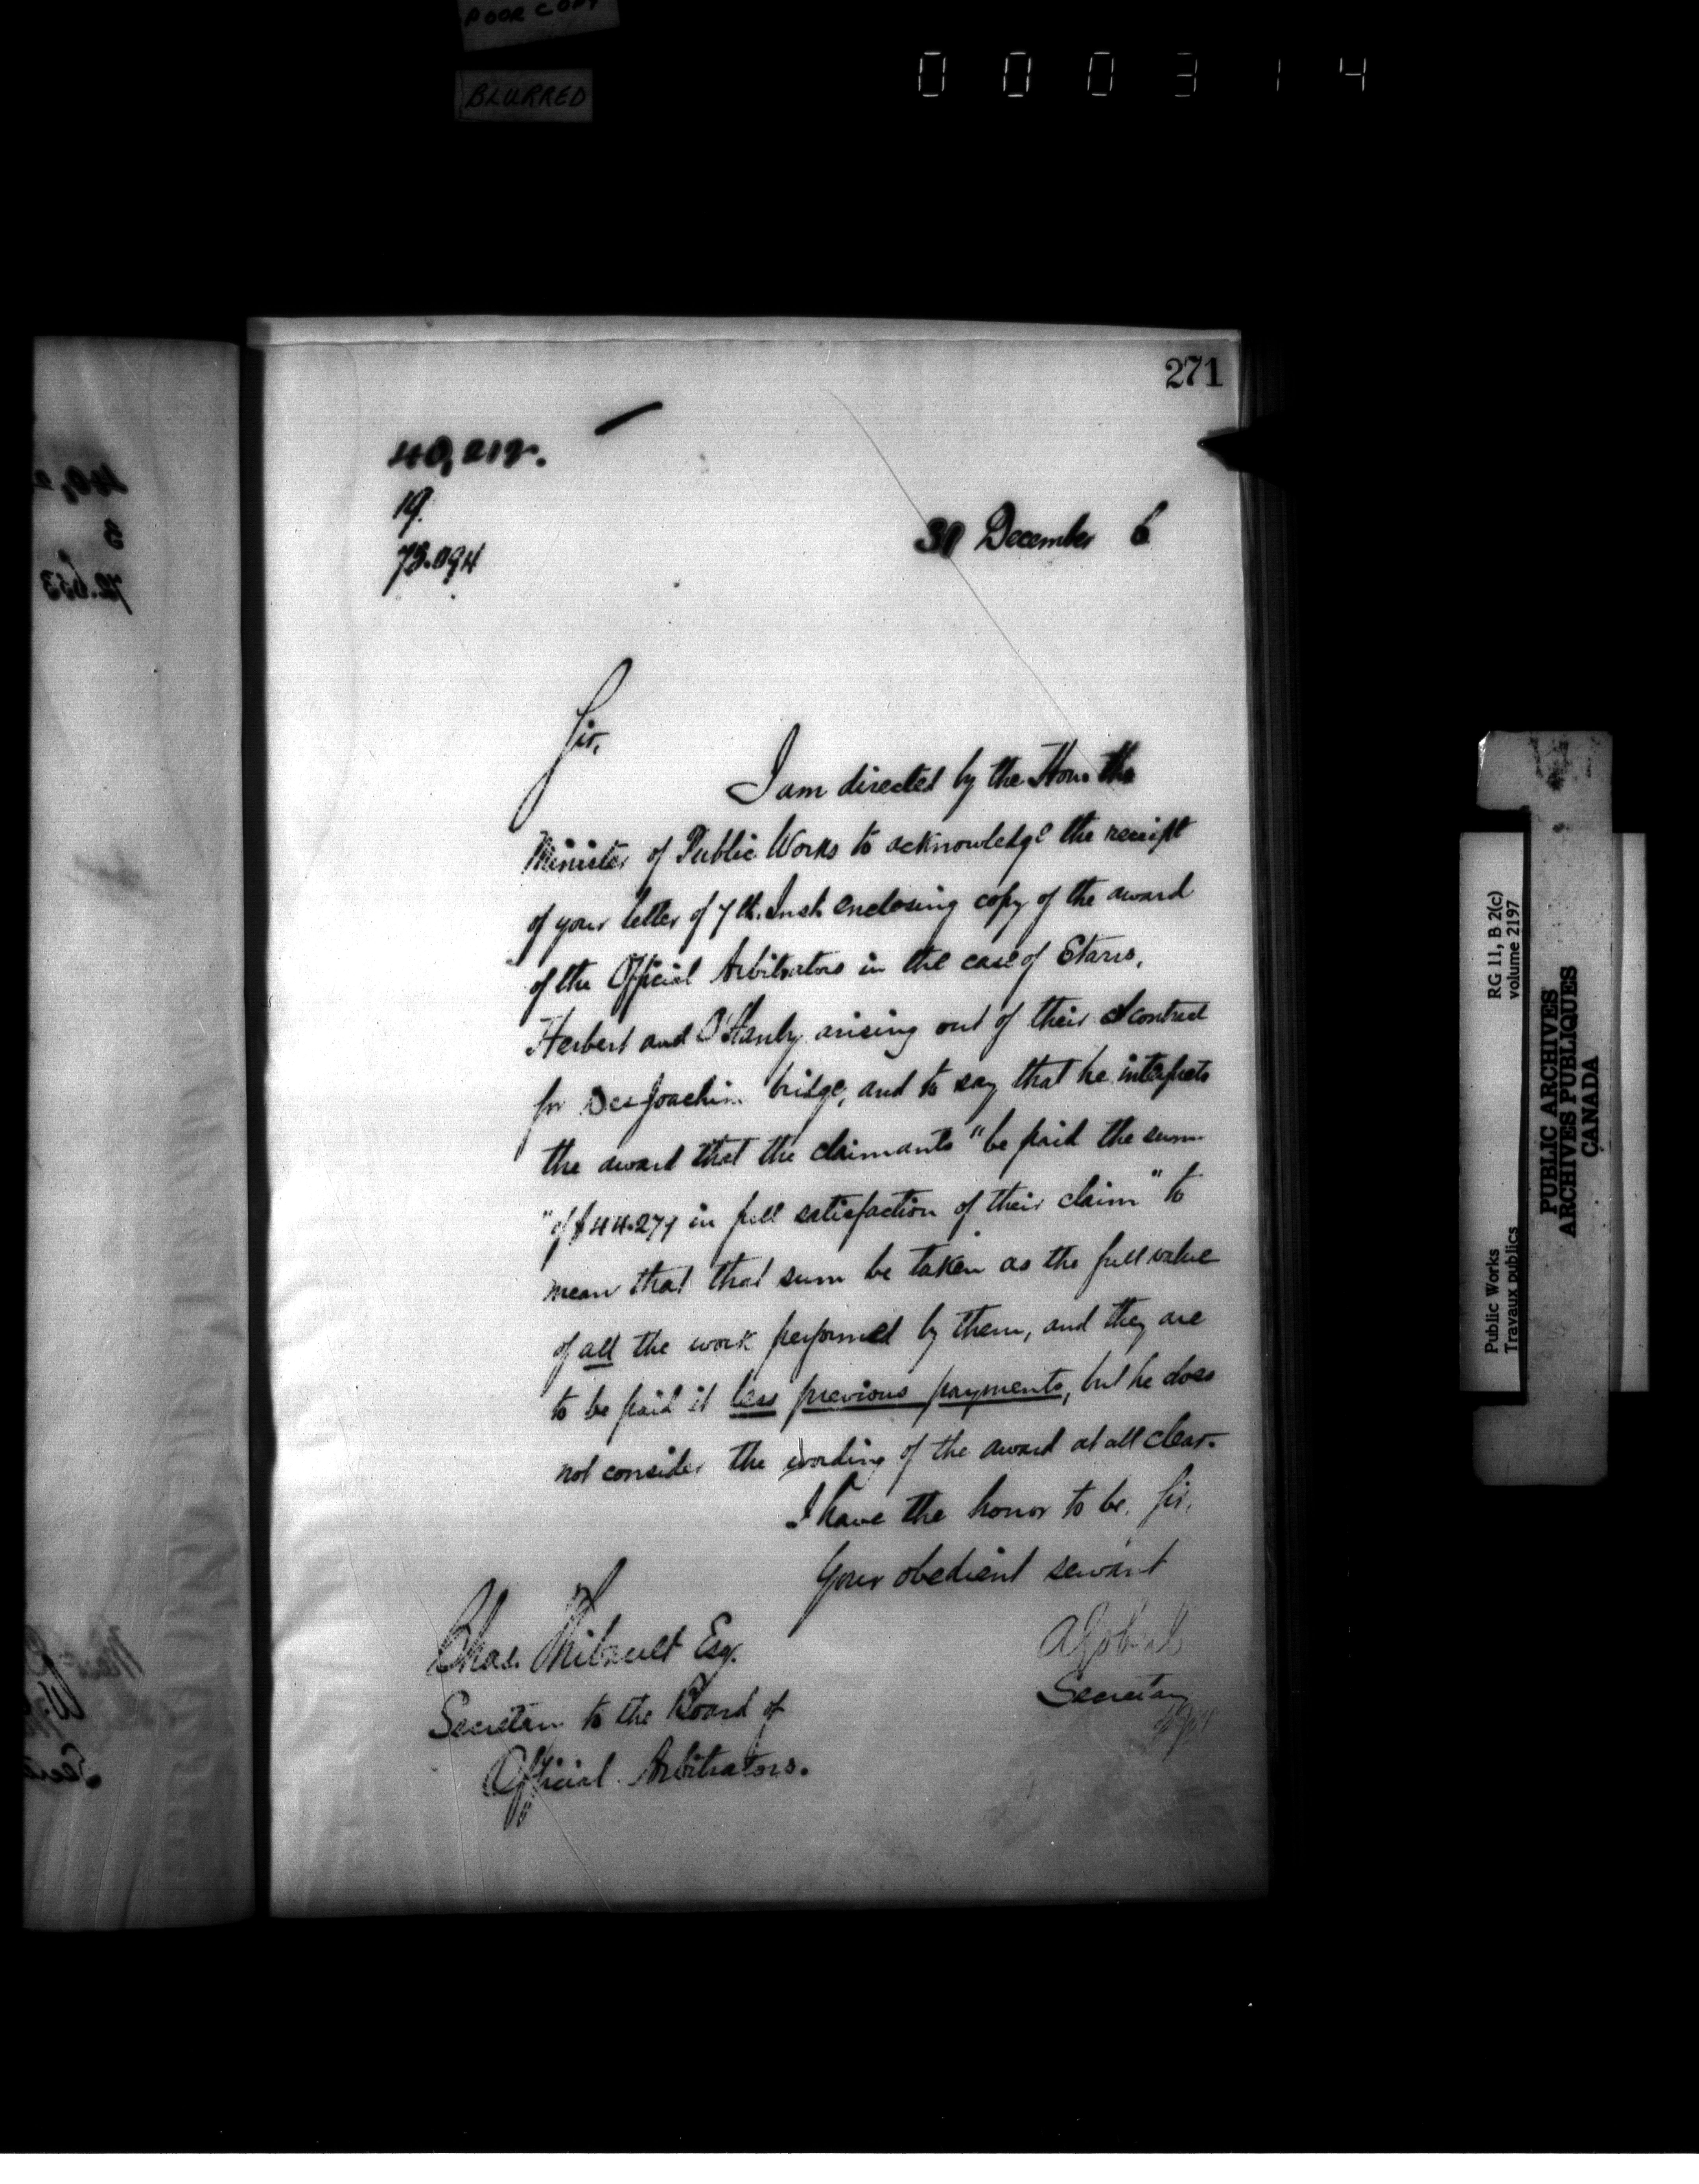 POOR COPY
BLURRED
000314
271
40,212.
19.
73.094
30 December 6
Sir,
I am directed by the Hon. the
Minister of Public Works to acknowledge the receipt
of your letter of 7th. Inst. enclosing copy of the award
of the Official Arbitrators in the case of Starrs,
Herbert and O'Hanly arising out of their contract
for Des Joachim bridge, and to say that he interprets
the award that the claimants "be paid the sum
"of $44.277 in full satisfaction of their claim" to
mean that that sum be taken as the full value
of all the work performed by them, and they are
to be paid it less previous payments, but he does
not consider the wording of the award at all clear.
I have the honor to be, Sir,
Your obedient servant
A Gobeil
Secretary
Chas. Thibault Esq.
Secretary to the Board of
Official Arbitrators.
Public Works
Travaux publics
RG 11, B 2(c)
volume 2197
PUBLIC ARCHIVES
ARCHIVES PUBLIQUES
CANADA
72.653